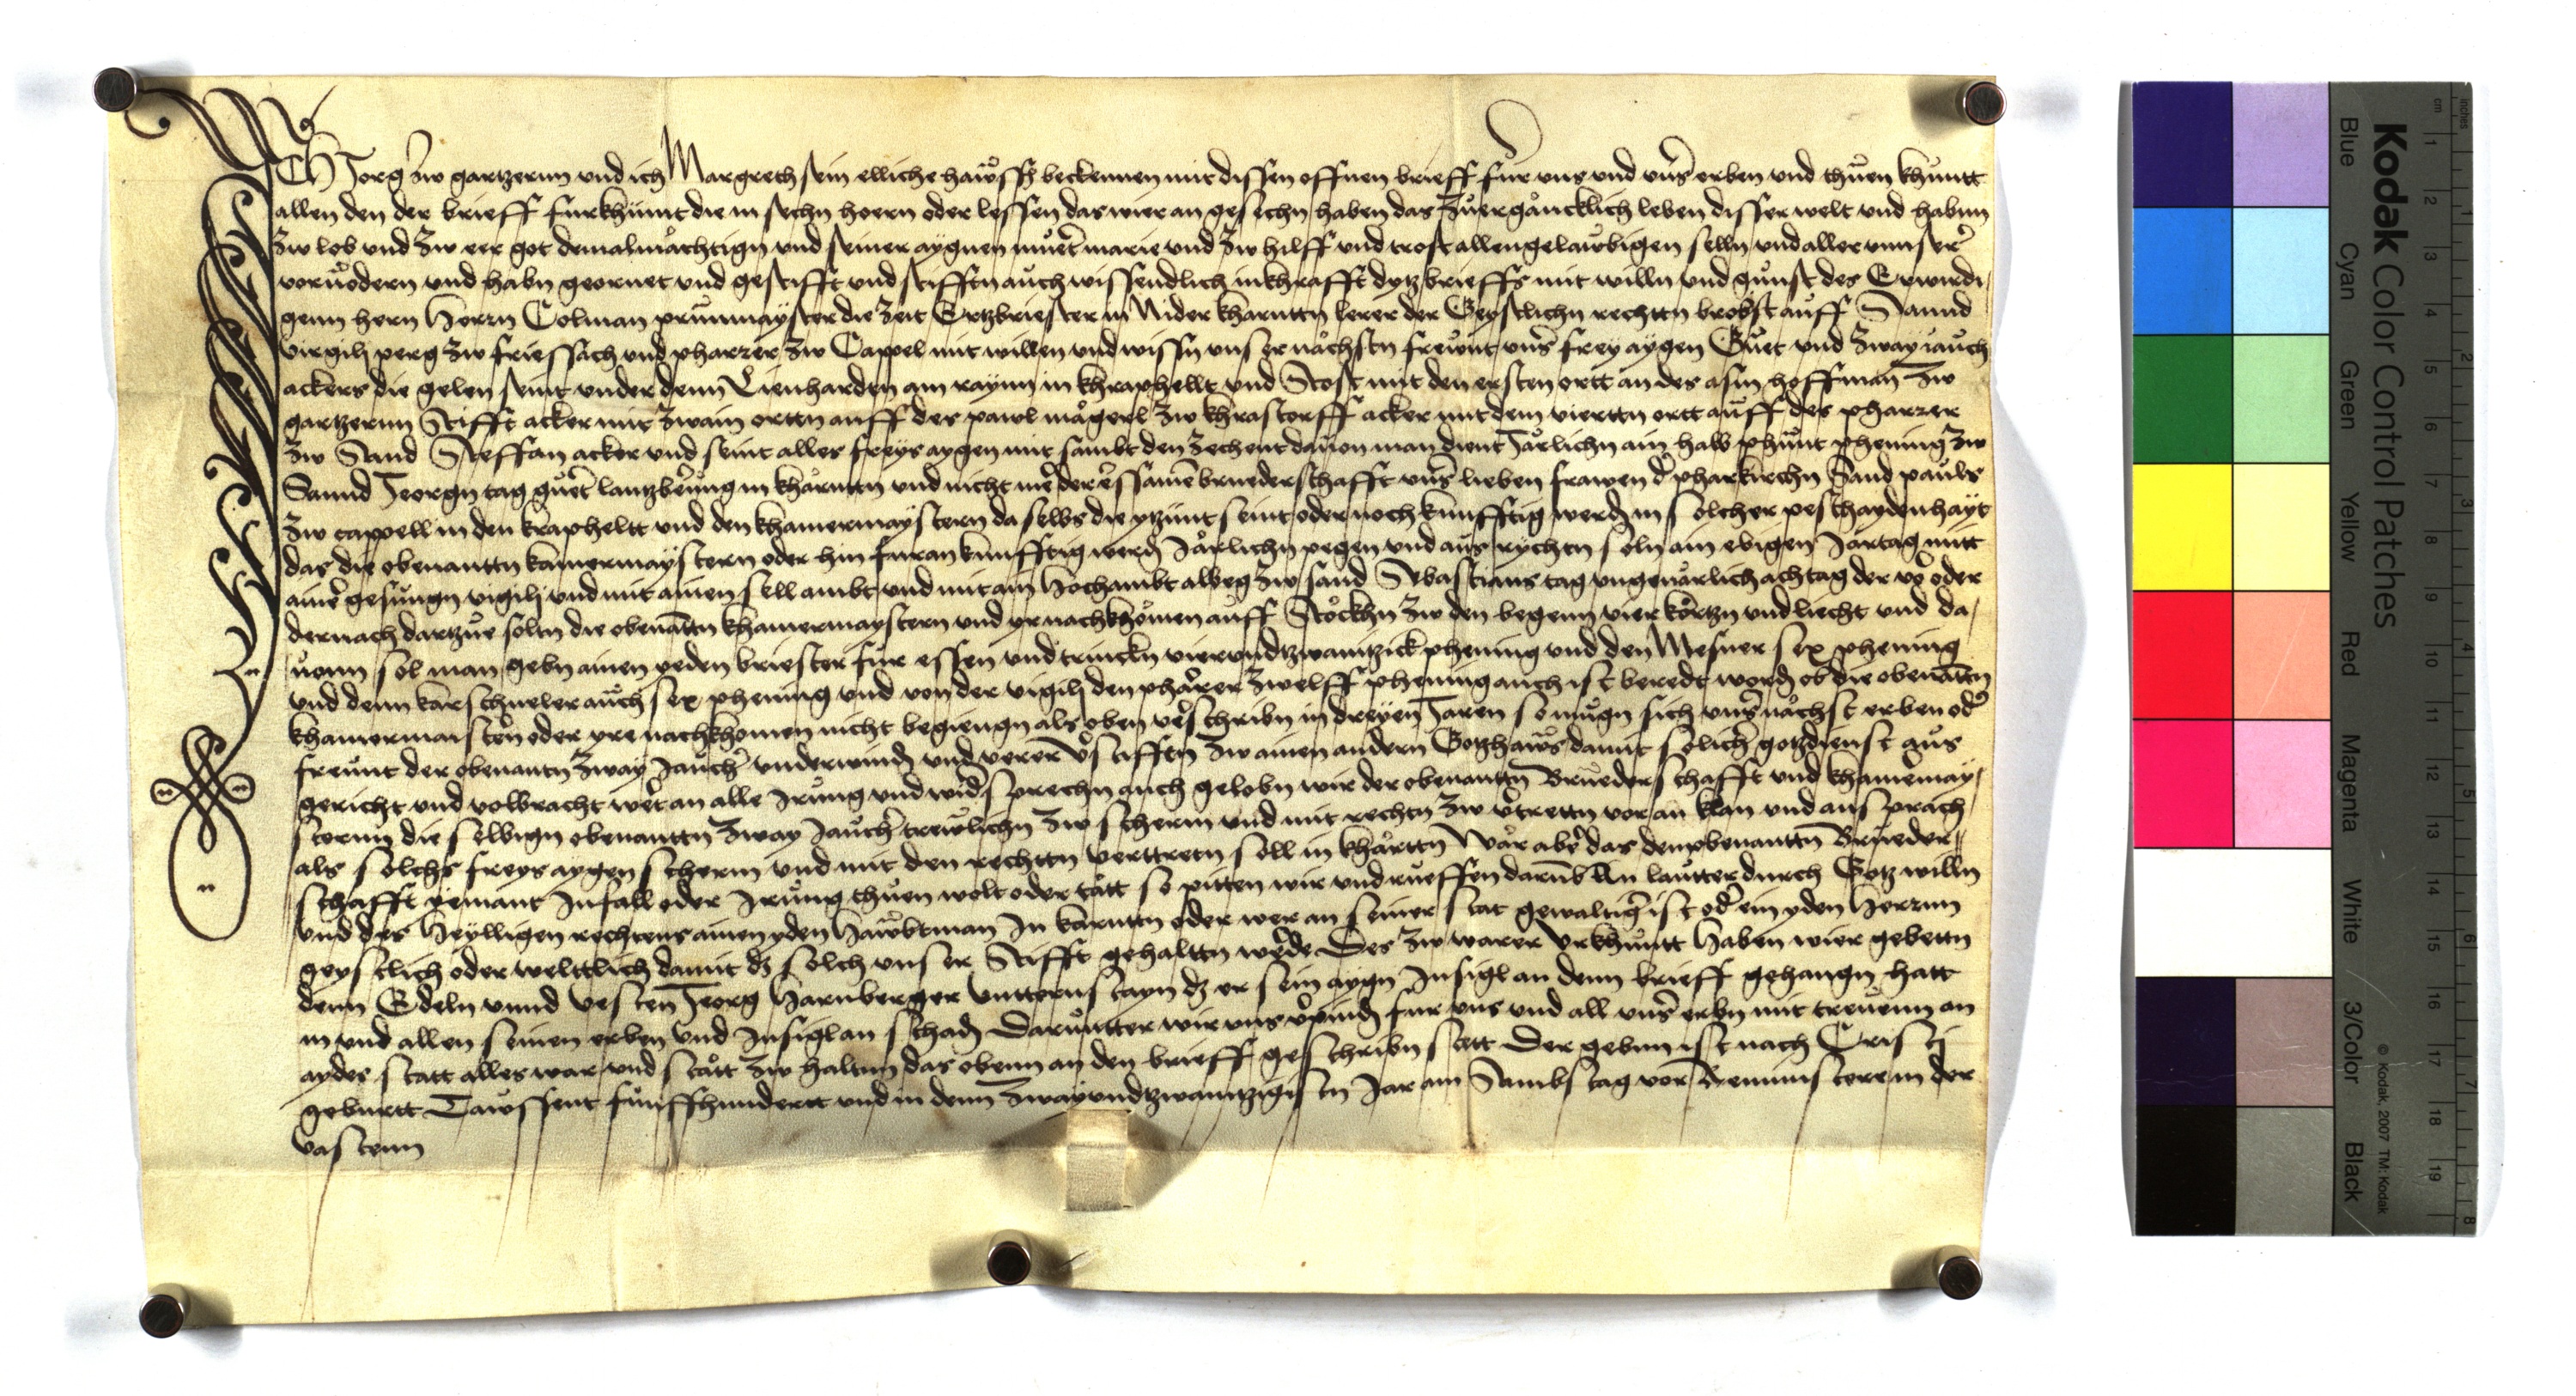 ICH Jorg zw gartzernn und ich Margreth sein elliche hawsfr beckennen mit dissen offnen brieff für uns und unser erben und thuen khuntt
allen den der brieff furkhumt die in sechn hoern oder lessen das wier an gesechn haben das zuergäncklich leben disser welt und habnn
zw lob und zw eer got dem almächtign und seiner aygnen mueter marie und zw hilff und trost allen gelawbigen selln und aller unnserer
vorvodern und habn geornet und gestifft und stifftn auch wissendlich in khrafft dytz brieffs mit willn und gunst des Erwirdi
genn hern Herrn Colman prunmayster die zeit Ertzbriester in Nider kharnttn lerer der Geystlichn rechttn brobst auff Sannd
virgilij perg zw friessach und pharrer zw Cappel mit willen und wissn unser nächstn frewnt unser frey aygen Guet und zway jauch
ackers die gelen seint under denn Lienharden am raynn in khraphellt und Stost mit den ersten ortt an des asm hoffman zw
gartzernn Stifft acker mit zwain orttn auff des pawl mägerl zw khrastorff acker mit dem vierttn ortt auff des pharrer
zw Sand Steffan acker und seint alles freys aygen mit sambt den zechent davon man dient Järlichn ain halb phunt phening zw
Sannd Jeorgn tag gueter lantzberung in khärnttn und nicht mer der erssamen bruederschafft unser lieben frawen der pharkirchn Sand pauls
zw cappell in den kraphelt und den khamermaystern da selbs die ytzunt seint oder noch kunfftig werden in solcher peschaydenhayt
das die obenanttn kamermaystern oder hin furan kunfftig werden Järlichn pegen und aus rychtn soln ain ebigen Jartag mitt
ainer gesungn vigilij und mit ainen sell ambt und mit ain Hochambt albeg zw sand Sebastians tag ungevärlich achtag der vor oder
dernach dartzue soltn die obenantn khamermaystern und yr nachkhomen auff Stöckhn zw den begenn vier kertzn und liecht und da
vonn sol man gebn ainen yeden briester fur essen und trinckn vierundtzwaintzick phening und den Mesner sex phening
und denn karschueler auch sex phening und von der vigilj den pharrer zwelff phening auch ist beredt worden ob die obenantn
khamermaistern oder yre nachkhomen nicht begiengn als oben verschribn in dreyen Jaren so mugn sich unser nächst erben oder
freunt der obenantn zway Jaucher underwinden und verrer verstifften zw ainen andern Gotzhaws damit solicher gotzdienst aus
gericht und volbracht wert an alle Irung und widersprechn auch gelobn wir der obenanttn Bruederschafft und khamermay
sternn die selbign obenanttn zway Jaucher trewlichn zw scherm und mit rechtn zw vertrettn vor an klan und ansprach
als solchs freys aygen scherm und mit den rechttn verttretn soll in khärttn Wär aber das dem obenanttn Brueder
schafft yemant Infall oder Irung thuen wolt oder tätt so pitten wir und rueffen darumb an lautter durch Gotz willn
und des Heylligen rechtens ainen yden Hawbtman In karnttn oder wer an seiner stat gewaltiger ist oder ein yden Herrnn
geystlich oder welttlich damit das solch unser Stifft gehalttn werde Des zw warer Urkhuntt haben wier gebettn
denn Edeln unnd vesten Jeorg Harnberger unttenstayn das er sein aygn Insigl an denn brieff gehangn hatt
in und allen seinen erben und Insigl an schaden Daruntter wir uns verpinden fur uns und all unser erbn mit treuenn an
aydes statt alles war und stätt zw haltnn das obenn an den brieff geschribn statt Der gebnn ist nach Cristi
geburtt Tawssent funffhundertt und in denn zwayundtzwaintzigistn Jar am Sambstag vor Reminisceren in der
vastenn
Kodak Color Control Patches
Blue Cyan Green Yellow Red Magenta White 3/Color Black
© Kodak, 2007 TM: Kodak
cm 1 2 3 4 5 6 7 8 9 10 11 12 13 14 15 16 17 18 19
inches 1 2 3 4 5 6 7 8